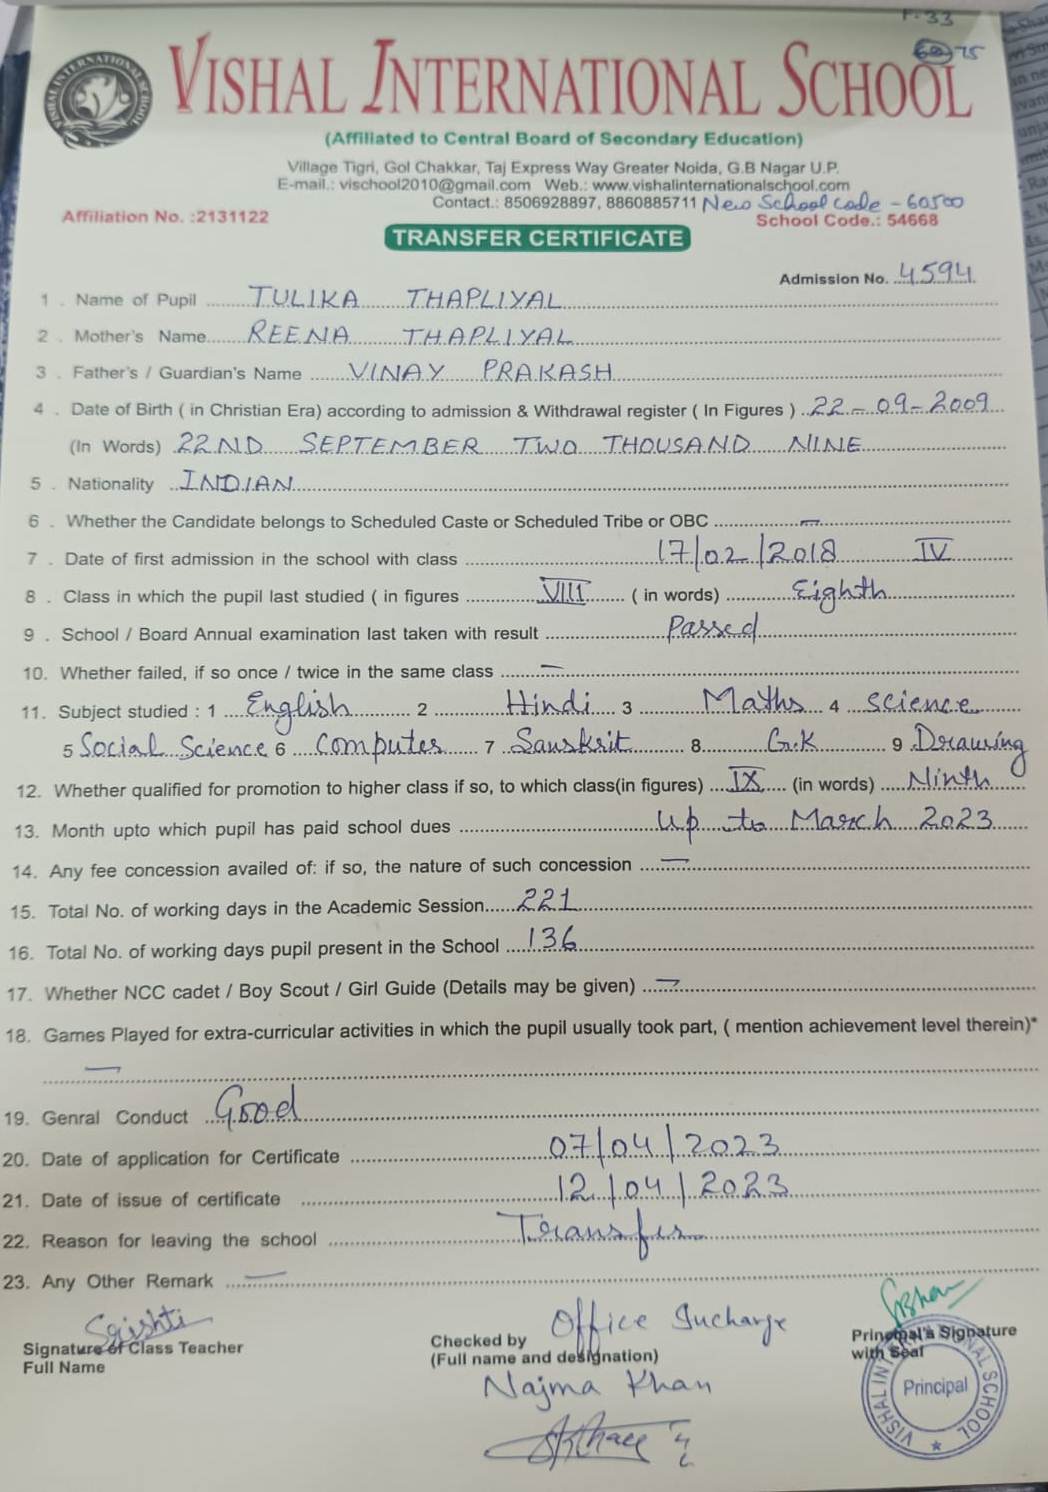 F-33
60 75
VISHAL INTERNATIONAL SCHOOL
(Affiliated to Central Board of Secondary Education)
Village Tigri, Gol Chakkar, Taj Express Way Greater Noida, G.B Nagar U.P.
E-mail.: vischool2010@gmail.com Web.: www.vishalinternationalschool.com
Contact.: 8506928897, 8860885711 New School Code - 60500
Affiliation No. :2131122 School Code.: 54668
TRANSFER CERTIFICATE
Admission No. 4594
1 . Name of Pupil TULIKA THAPLIYAL
2 . Mother's Name REENA THAPLIYAL
3 . Father's / Guardian's Name VINAY PRAKASH
4 . Date of Birth ( in Christian Era) according to admission & Withdrawal register ( In Figures ) 22-09-2009
(In Words) 22ND SEPTEMBER TWO THOUSAND NINE
5 . Nationality INDIAN
6 . Whether the Candidate belongs to Scheduled Caste or Scheduled Tribe or OBC —
7 . Date of first admission in the school with class 17/02/2018 IV
8 . Class in which the pupil last studied ( in figures VIII ( in words) Eighth
9 . School / Board Annual examination last taken with result Passed
10. Whether failed, if so once / twice in the same class —
11. Subject studied : 1 English 2 Hindi 3 Maths 4 Science
5 Social Science 6 Computer 7 Sanskrit 8 G.K 9 Drawing
12. Whether qualified for promotion to higher class if so, to which class(in figures) IX (in words) Ninth
13. Month upto which pupil has paid school dues up to March 2023
14. Any fee concession availed of: if so, the nature of such concession —
15. Total No. of working days in the Academic Session 221
16. Total No. of working days pupil present in the School 136
17. Whether NCC cadet / Boy Scout / Girl Guide (Details may be given) —
18. Games Played for extra-curricular activities in which the pupil usually took part, ( mention achievement level therein)*
—
19. Genral Conduct Good
20. Date of application for Certificate 07/04/2023
21. Date of issue of certificate 12/04/2023
22. Reason for leaving the school Transfer
23. Any Other Remark —
Srishti
Signature of Class Teacher
Full Name
Checked by Office Incharge
(Full name and designation)
Najma Khan
Principal's Signature
with Seal
VISHAL INTERNATIONAL SCHOOL
Principal